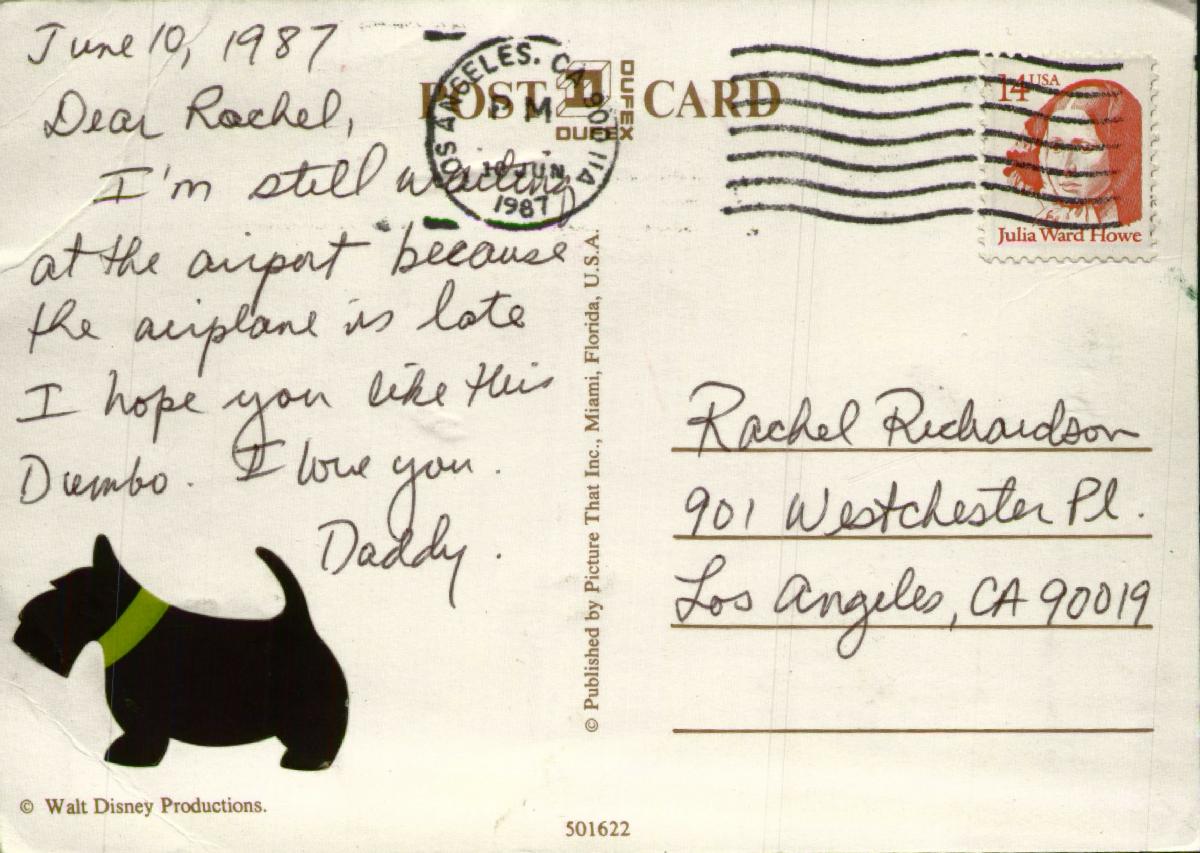 June 10, 1987
Dear Rachel,
I'm still waiting
at the airport because
the airplane is late
I hope you like this
Dumbo. I love you.
Daddy.
© Walt Disney Productions.
POST CARD
DUFEX
DUFEX
LOS ANGELES, CA 900 11A
PM
10 JUN
1987
© Published by Picture That Inc., Miami, Florida, U.S.A.
501622
14 USA
Julia Ward Howe
Rachel Richardson
901 Westchester Pl.
Los Angeles, CA 90019